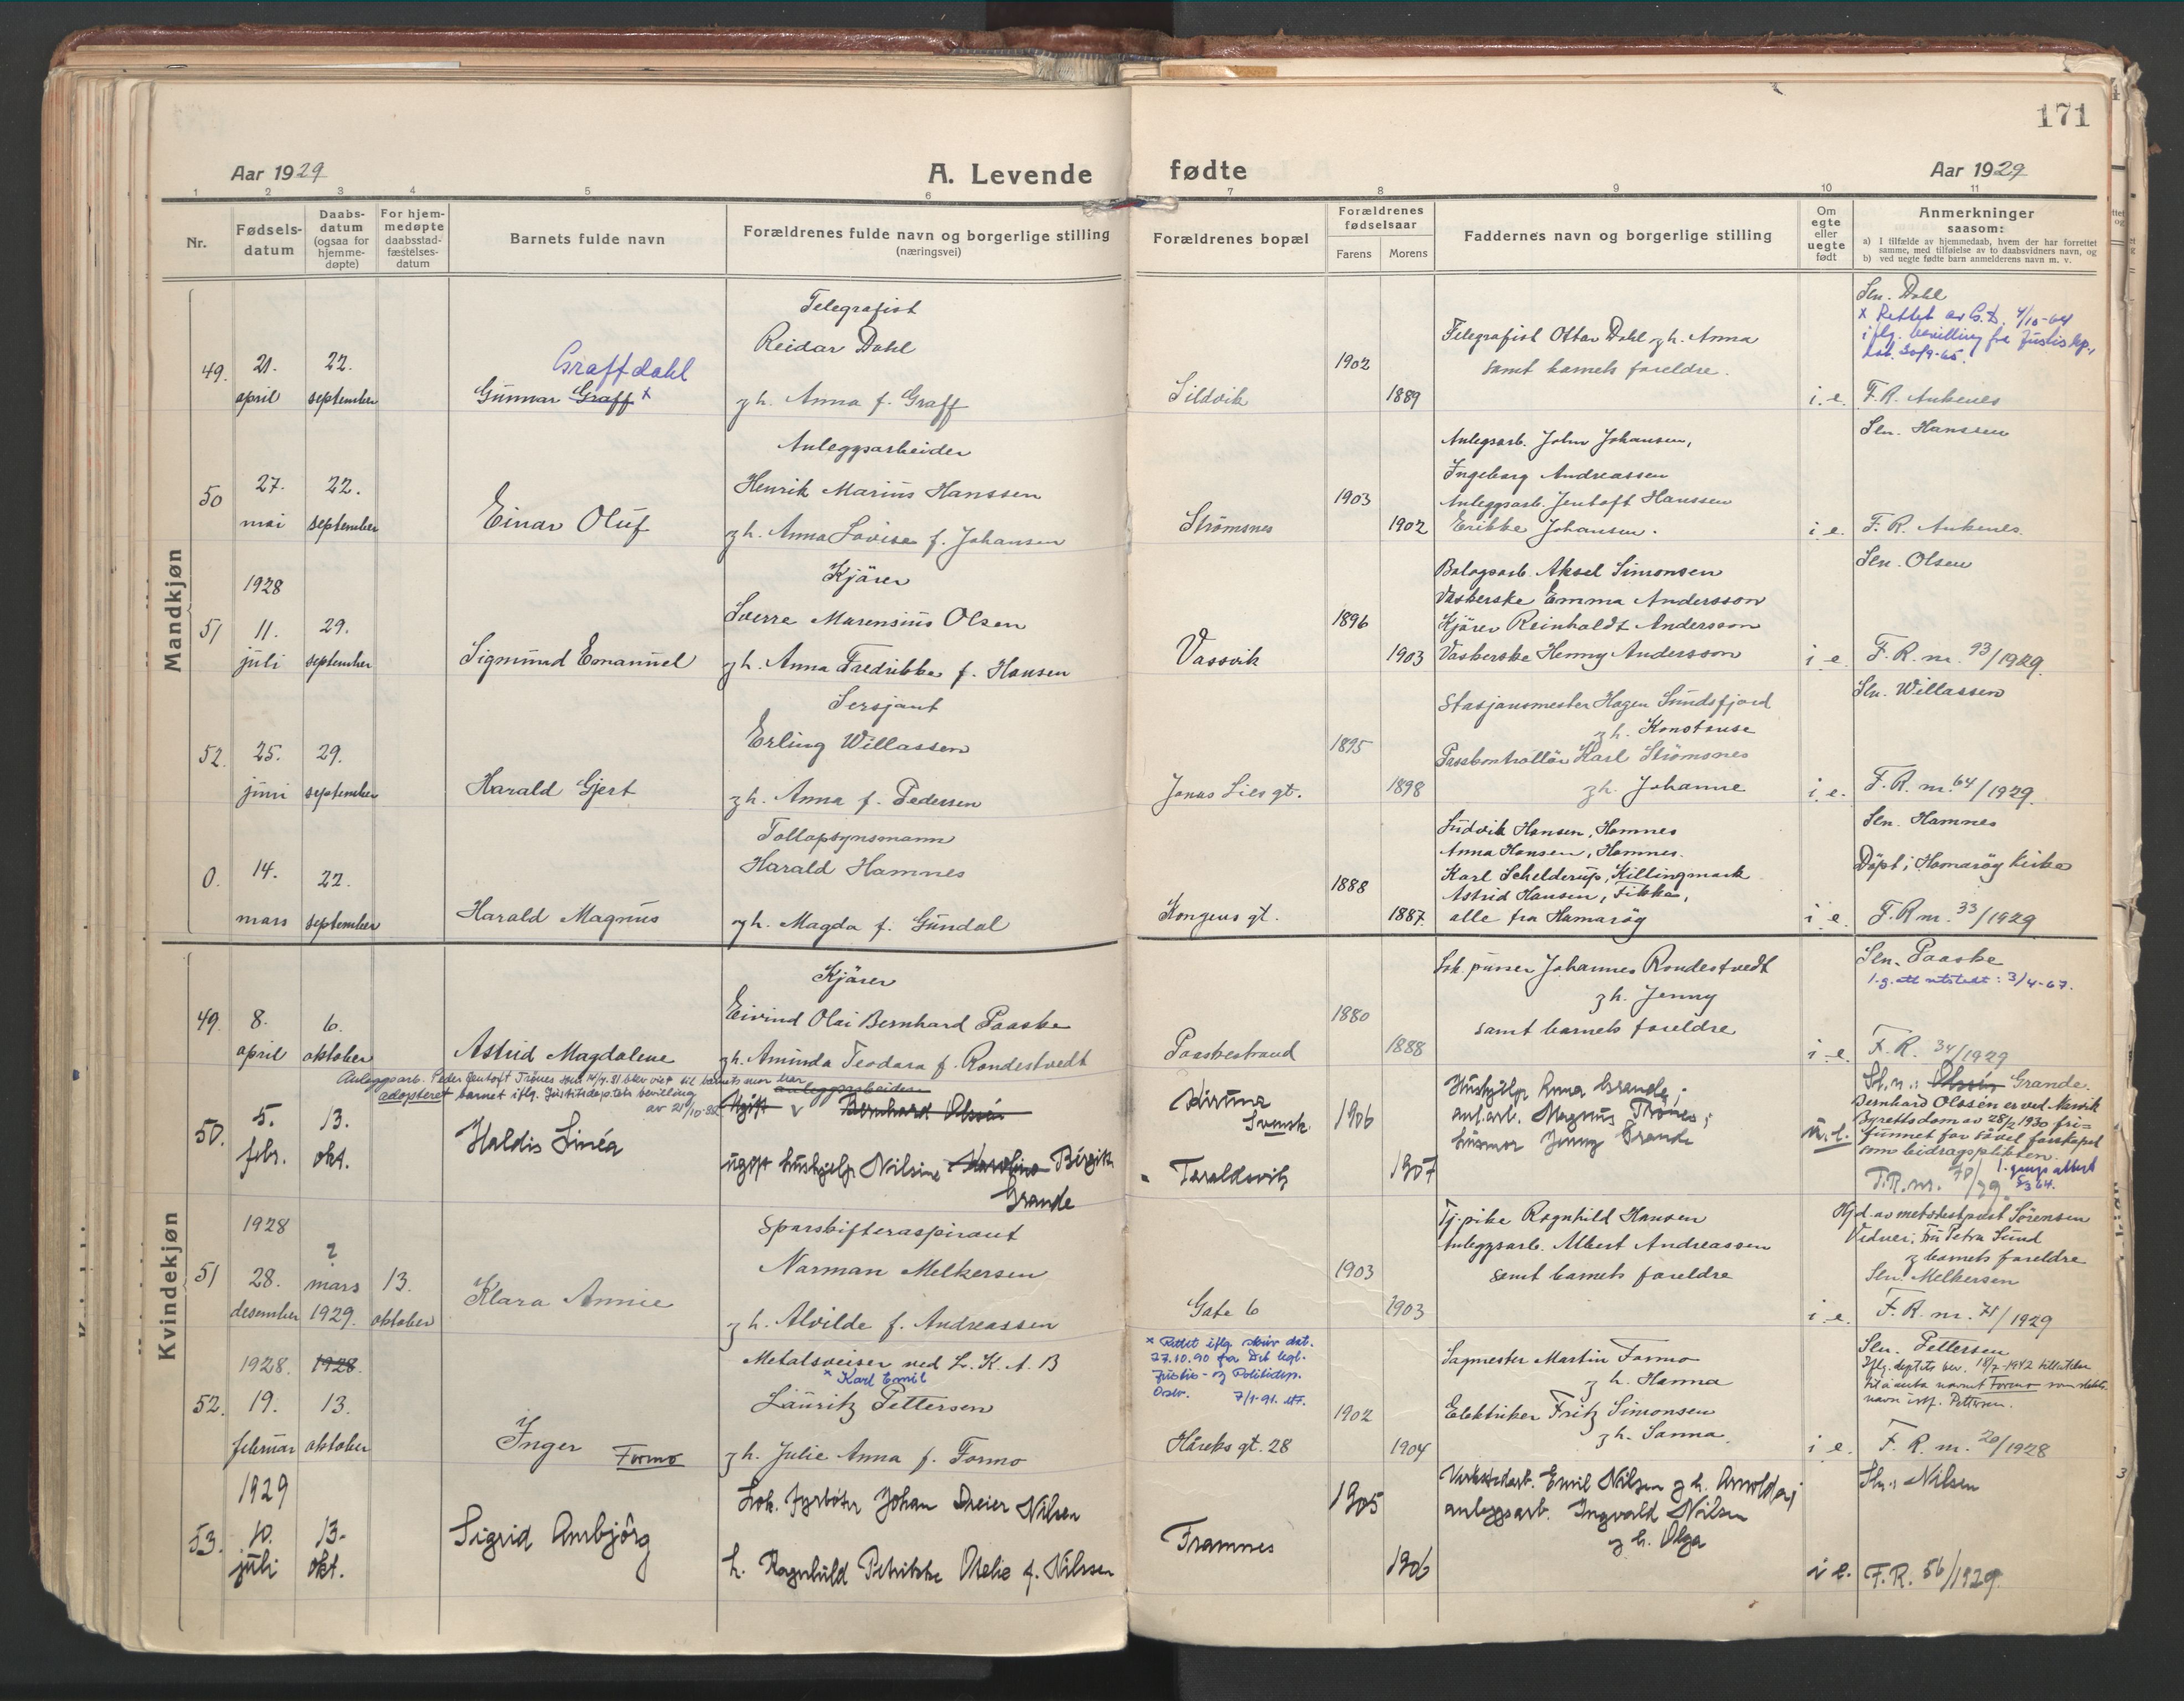 171
Aar 1929
A. Levende fødte
Aar 1929
1 2 3 4 5 6 7 8 9 10 11
Nr.
Fødsels-
datum
Daabs-
datum
(ogsaa for
hjemme-
døpte)
For hjem-
medøpte
daabsstad-
fæstelses-
datum
Barnets fulde navn
Forældrenes fulde navn og borgerlige stilling
(næringsvei)
Forældrenes bopæl
Forældrenes
fødselsaar
Farens
Morens
Faddernes navn og borgerlige stilling
Om
egte
eller
uegte
født
Anmerkninger
saasom:
a) I tilfælde av hjemmedaab, hvem der har forrettet
samme, med tilføielse av to daabsvidners navn, og
b) ved uegte fødte barn anmelderens navn m. v.
Mandkjøn
49.
21.
april
22.
september
Graffdahl
Gunnar Graff x
Telegrafist
Reidar Dahl
og h. Anna f. Graff
Sildvik
1902
1889
Telegrafist Ottar Dahl og h. Anna
samt barnets foreldre.
i. e.
Sln. Dahl
x Rettet av S.D. 4/10-64
i flg. bevilling fra Justisdep.,
dat. 30/9-65.
F.R. Ankenes
50
27.
mai
22.
september
Einar Oluf
Anleggsarbeider
Henrik Marius Hanssen
og h. Anna Lovise f. Johansen
Strømsnes
1903
1902
Anlegsarb. John Johansen,
Ingeborg Andreassen
Anleggsarb. Jentoft Hanssen
Erikke Johansen.
i e.
Sln. Hanssen
F. R. Ankenes.
51
1928
11.
juli
29.
september
Sigmund Emanuel
Kjører
Sverre Marensius Olsen
og h. Anna Fredrikke f. Hansen
Vassvik
1896
1903
Bolagsarb. Aksel Simonsen
Vaskerske Emma Andersson
Kjører Reinholdt Andersson
Vaskerske Henny Andersson
i e.
Sln. Olsen
F. R. nr. 93/1929.
52.
25.
juni
29.
september
Harald Gjert
Sersjant
Erling Willassen
og h. Anna f. Pedersen
Jonas Lies gt.
1895
1898
Stasjonsmester Hagen Sundsfjord
og h. Konstanse
Passkontrollør Karl Strømsnes
og h. Johanne
i. e.
Sln. Willassen
F. R. nr. 64/1929.
0.
14.
mars
22.
september
Harald Magnus
Tollopsynsmann
Harald Hamnes
og h. Magda f. Gundal
Kongens gt.
1888
1887.
Ludvik Hansen, Hamnes
Anna Hansen, Hamnes.
Karl Schelderup, Killingmark
Astrid Hansen, Fikke,
alle fra Hamarøy
i e.
Sln. Hamnes
Døpt i Hamarøy kirke
F.R nr. 33/1929
Kvindekjøn
49.
8.
april
6.
oktober
Astrid Magdalene
Kjører
Eivind Olai Bernhard Paaske
og h. Aminda Teodora f. Rondestvedt
Paaskestrand
1880
1888
Lok. pusser Johannes Rondestvedt
og h. Jenny
samt barnets foreldre
i. e.
Sln. Paaske
1. g. att utstedt: 3/4-67.
F. R. 34/1929
Anleggsarb. Peder Jentoft Trönes som 14/4.31 blev viet til barnets mor har
adopteret barnet iflg. Justitsdep.tets bevilling
av 21/10-32
50.
5.
febr.
13.
okt.
Haldis Linéa
anleggsarbeider
Ugift v Bernhard Olssén
ugift hushjelp Nilsine Karoline Birgitte
Grande
Kiruna
Svensk
Taraldsvik
1906
1907
Hushjelp Anna Grande;
anl.arb. Magnus Trönes;
husmor Jenny Grande
u. e.
Sl.n.: Olssén Grande.
Bernhard Olssén er ved Narvik
Byrettsdom av 28/2 1930 fri-
funnet for såvel farskapet
som bidragsplikten.
F.R. nr. 70/29.
1. gangs attest
51
1928
28.
desember
?
mars
1929.
13.
oktober
Klara Annie
Sporskifteraspirant
Norman Melkersen
og h. Alvilde f. Andreassen
Gate 6
1903
1903
Tj. pike Ragnhild Hansen
Anleggsarb. Albert Andreassen
samt barnets foreldre
i e.
Hjd. av metodistprest Sørensen
Vidner: Fru Petra Lund
og barnets foreldre
Sln. Melkersen
F. R. nr. 71/1929
52.
1928.
19.
februar
1928.
13.
oktober
Inger Formo
Metalsveiser ved L. K. A. B
x Karl Emil
Lauritz Pettersen
og h. Julie Anna f. Formo
x Rettet iflg. skriv dat.
27.10.90 fra Det kgl.
Justis- og Politidep.
Oslo. 7/1-91.
Håreks gt. 28
1902
1904
Sagmester Martin Formo
og h. Hanna
Elektriker Fritz Simonsen
og h. Sanna.
i e.
Sln. Pettersen
Iflg. deptets bev. 18/7-1942 tillatelse
til å anta navnet Formo som slekts-
navn istf. Pettersen.
F. R. nr. 20/1928
53.
1929
10.
juli
13.
okt.
Sigrid Annbjørg
Lok. fyrbøter Johan Dreier Nilsen
h. Ragnhild Petrikke Otelie f. Nilssen
Framnes
1905
1906
Verkstedarb. Emil Nilsen og h. Arnolda;
anleggsarb. Ingvald Nilsen
og h. Olga
i e.
Sln.: Nilsen
F.R. 56/1929.